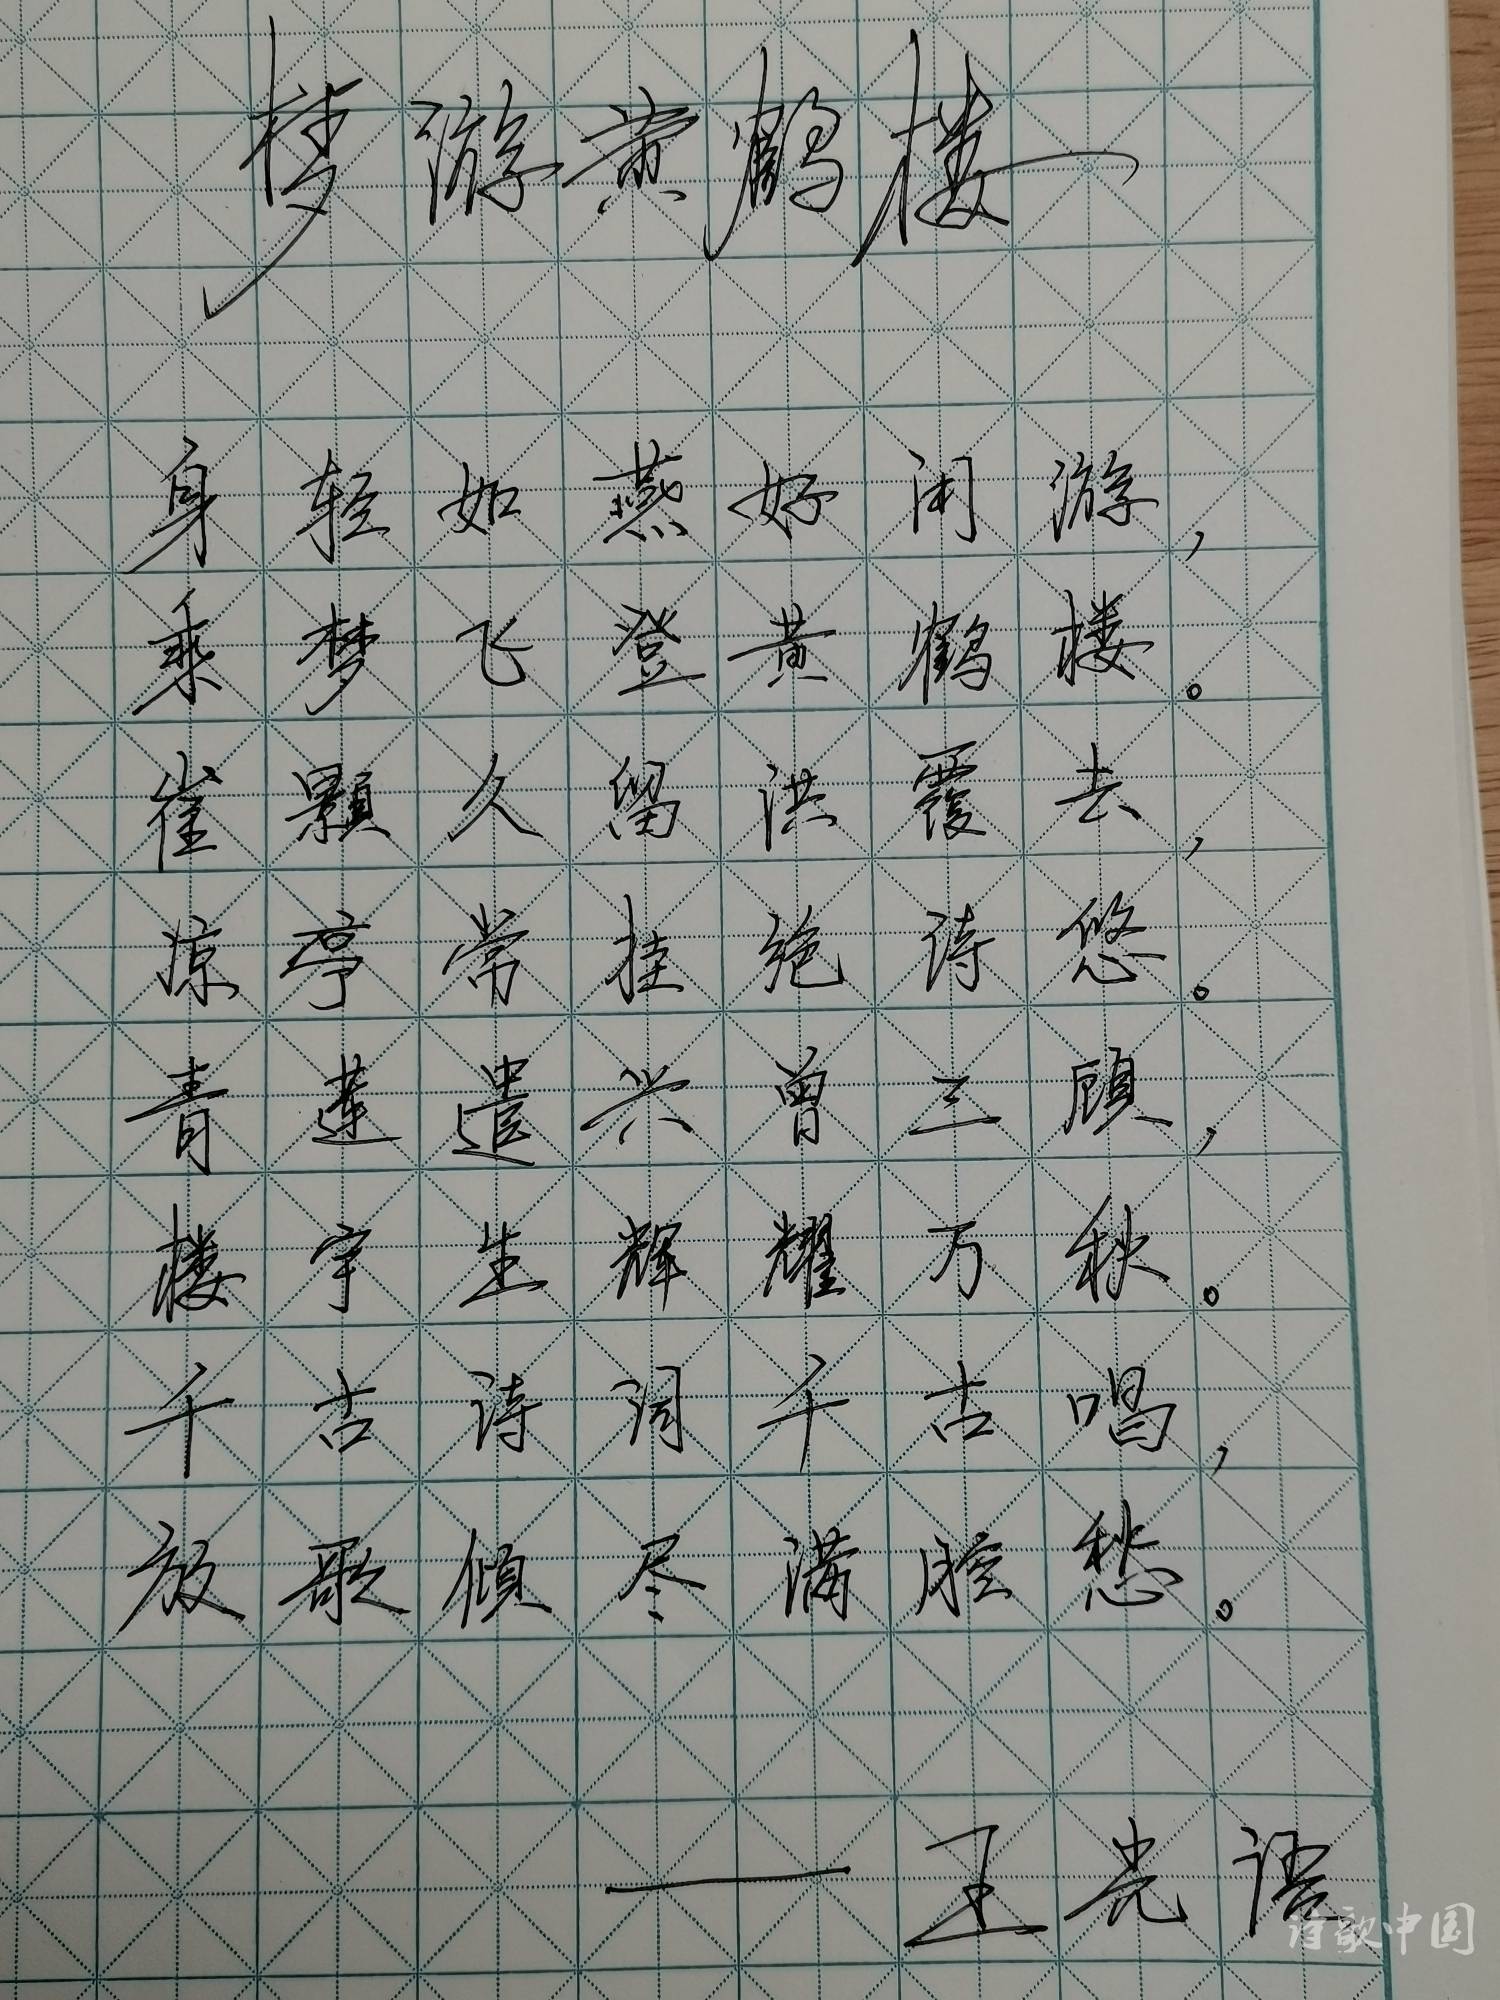 梦游黄鹤楼
身轻如燕好闲游，
乘梦飞登黄鹤楼。
崔颢久留洪霞去，
凉亭常挂绝诗悠。
青莲遣兴曾三顾，
楼宇生辉耀万秋。
千古诗词千古唱，
放歌倾尽满腔愁。
——王光语
诗歌中国